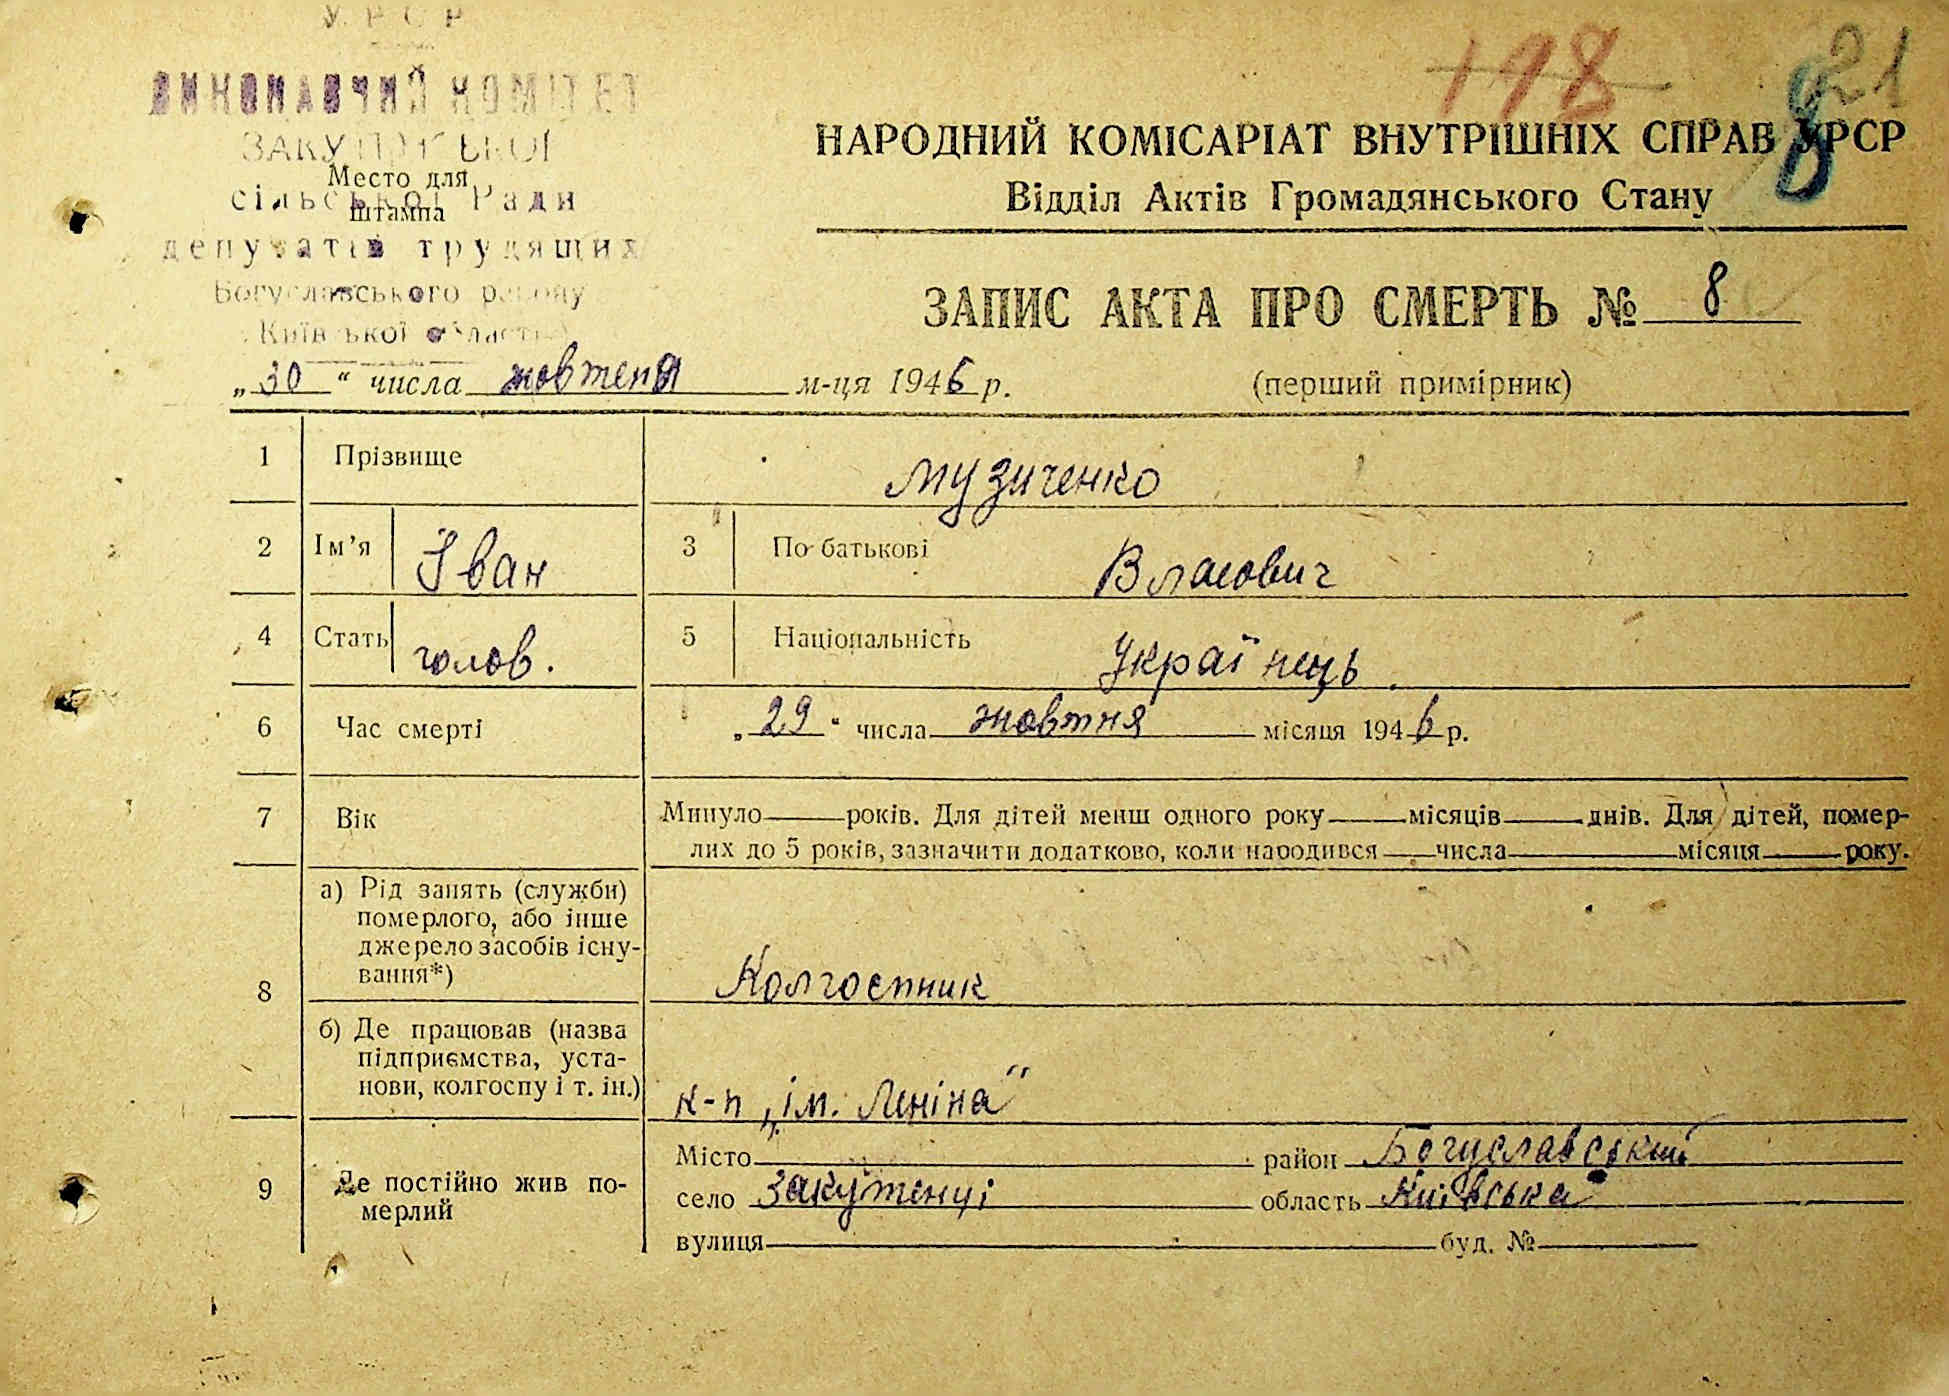 У Р С Р
198
21
8
НАРОДНИЙ КОМІСАРІАТ ВНУТРІШНІХ СПРАВ УРСР
Відділ Актів Громадянського Стану
сільської Ради
Место для
штампа
депутатів трудящих
Богуславського району
Київської області
ЗАПИС АКТА ПРО СМЕРТЬ № 8
„30“ числа жовтеня м-ця 1946 р.
(перший примірник)
1 Прізвище Музиченко
2 Ім’я Іван 3 По-батькові Власович
4 Стать голов. 5 Національність Українець
6 Час смерті „29“ числа жовтня місяця 1946 р.
7 Вік Минуло____років. Для дітей менш одного року____місяців____днів. Для дітей, помер-
лих до 5 років, зазначити додатково, коли народився____числа____місяця____року.
8 а) Рід занять (служби)
померлого, або інше
джерело засобів існу-
вання*) Колгоспник
б) Де працював (назва
підприємства, уста-
нови, колгоспу і т. ін.) к-п „ім. Леніна"
9 Де постійно жив по-
мерлий
Місто____ район Богуславський
село Закутенці область Київська
вулиця____ буд. №____